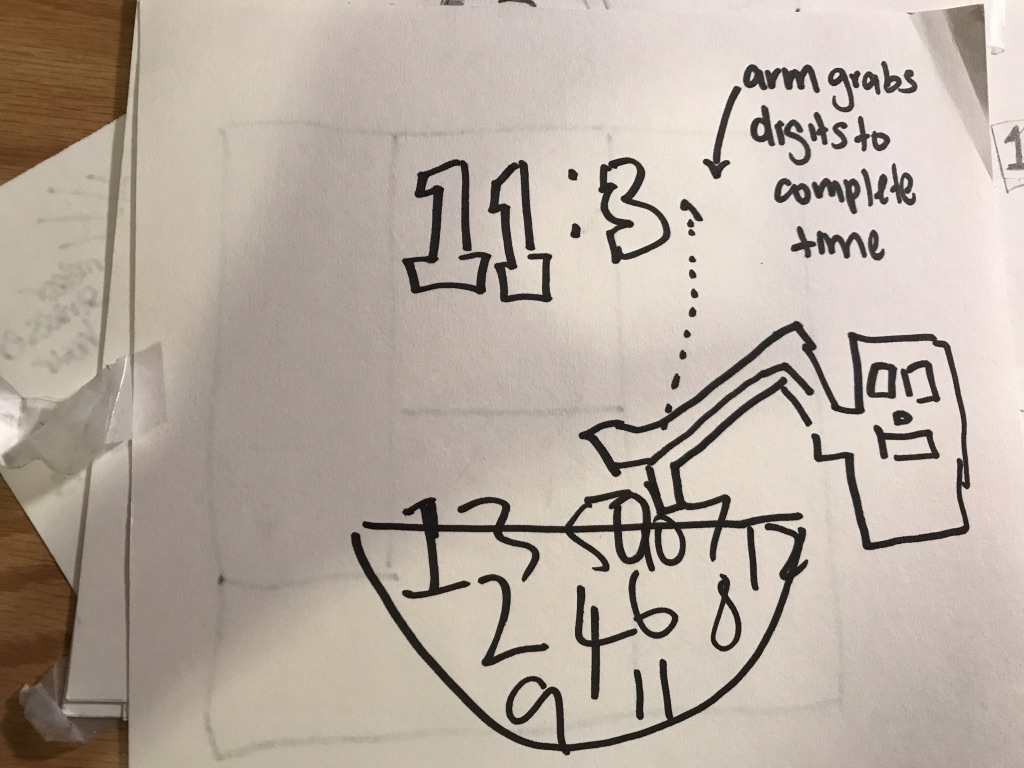 arm grabs
digits to
complete
time
11:3
1 3 5 9 6 7 12
2 4 6 8
9 11